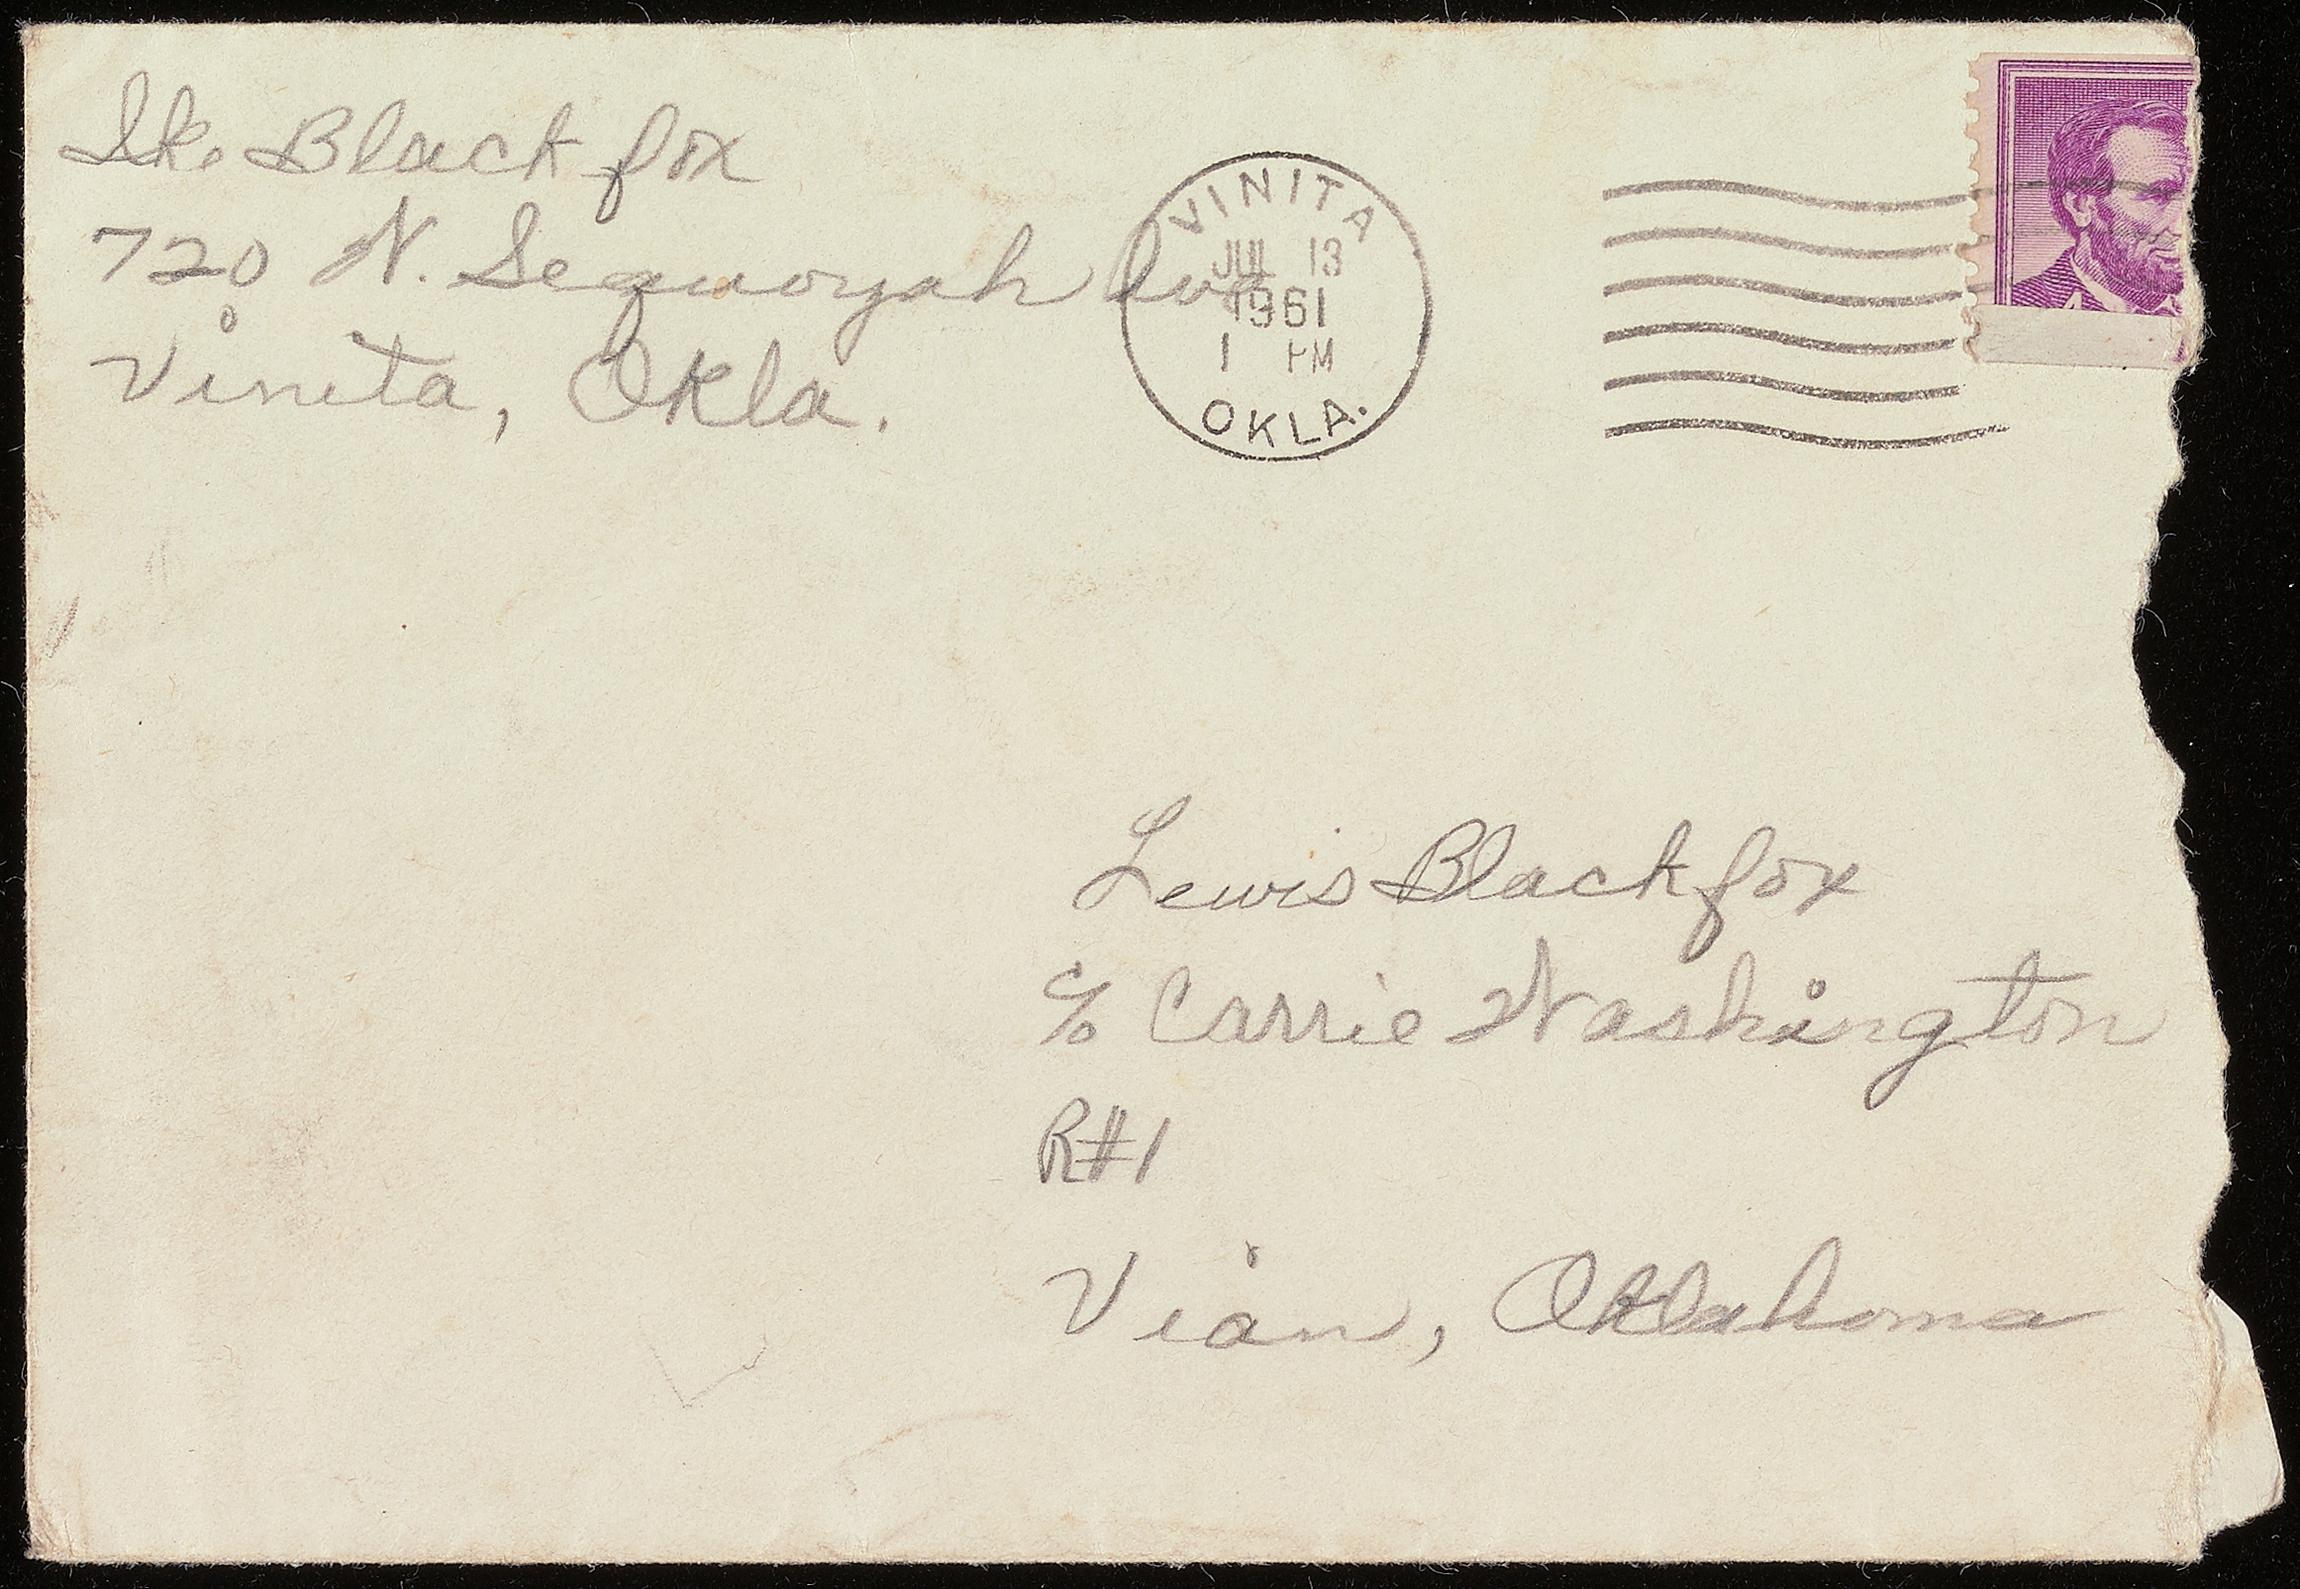 Ik. Blackfox
720 N. Sequoyah Ave
Vinita, Okla.
VINITA
JUL 13
1961
1 PM
OKLA.
Lewis Blackfox
c/o Carrie Washington
R#1
Vian, Oklahoma